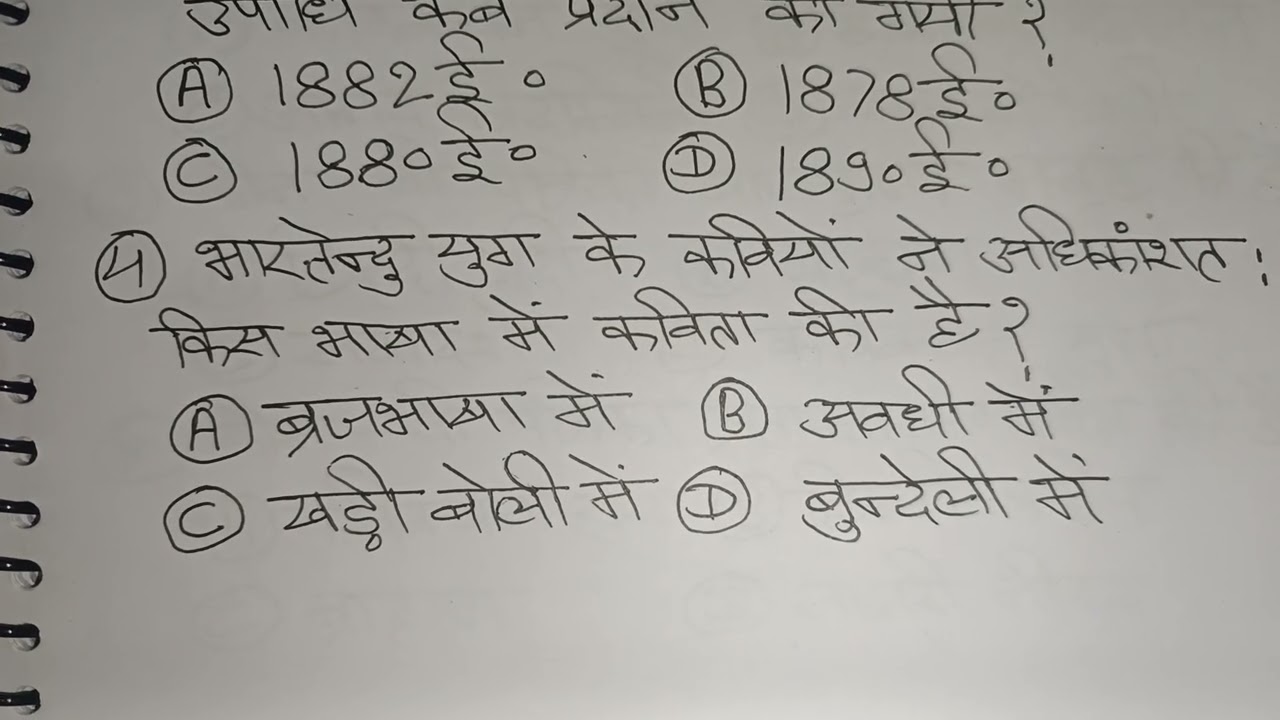 उपाधि कब प्रदान की गयी?
Ⓐ 1882 ई० Ⓑ 1878 ई०
Ⓒ 1880 ई० Ⓓ 1890 ई०
④ भारतेन्दु युग के कवियों ने अधिकांशत:
किस भाषा में कविता की है?
Ⓐ ब्रजभाषा में Ⓑ अवधी में
Ⓒ खड़ी बोली में Ⓓ बुन्देली में